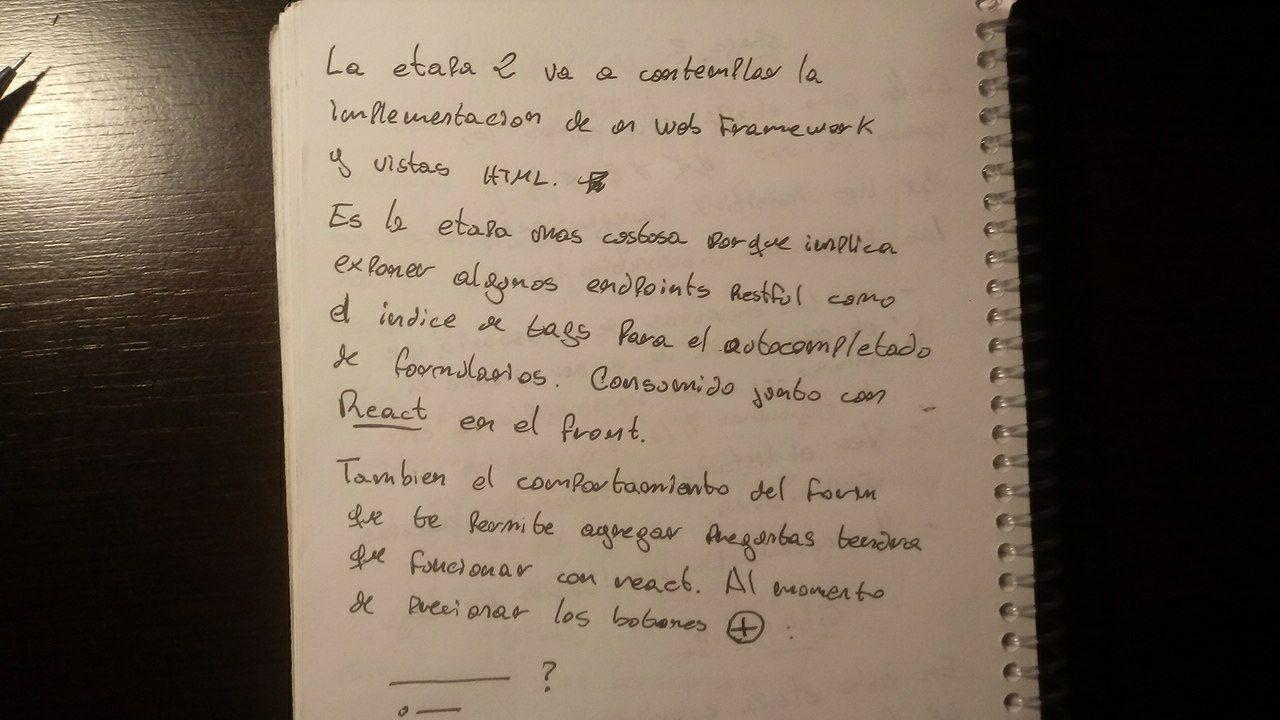 La etapa 2 va a contemplar la
implementacion de un web Framework
y vistas HTML.
Es la etapa mas costosa porque implica
exponer algunos endpoints Restful como
el indice de tags para el autocompletado
de formularios. Consumido junto con
React en el front.
Tambien el comportamiento del form
que te permite agregar preguntas tendra
que funcionar con react. Al momento
de precionar los botones + :
?